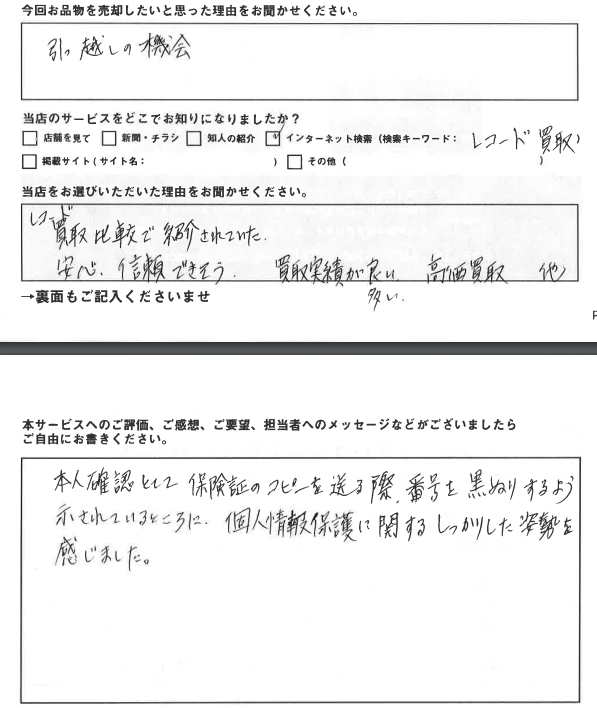 今回お品物を売却したいと思った理由をお聞かせください。
引っ越しの機会
当店のサービスをどこでお知りになりましたか?
□ 店舗を見て □ 新聞・チラシ □ 知人の紹介 ☑ インターネット検索（検索キーワード： レコード買取）
□ 掲載サイト（サイト名： ） □ その他（ ）
当店をお選びいただいた理由をお聞かせください。
レコード
買取比較で紹介されていた.
安心、信頼できそう. 買取実績が良い 高価買取 他
多い.
→裏面もご記入くださいませ
P
本サービスへのご評価、ご感想、ご要望、担当者へのメッセージなどがございましたら
ご自由にお書きください。
本人確認として保険証のコピーを送る際、番号を黒ぬりするよう
示されているところに、個人情報保護に関するしっかりした姿勢を
感じました。